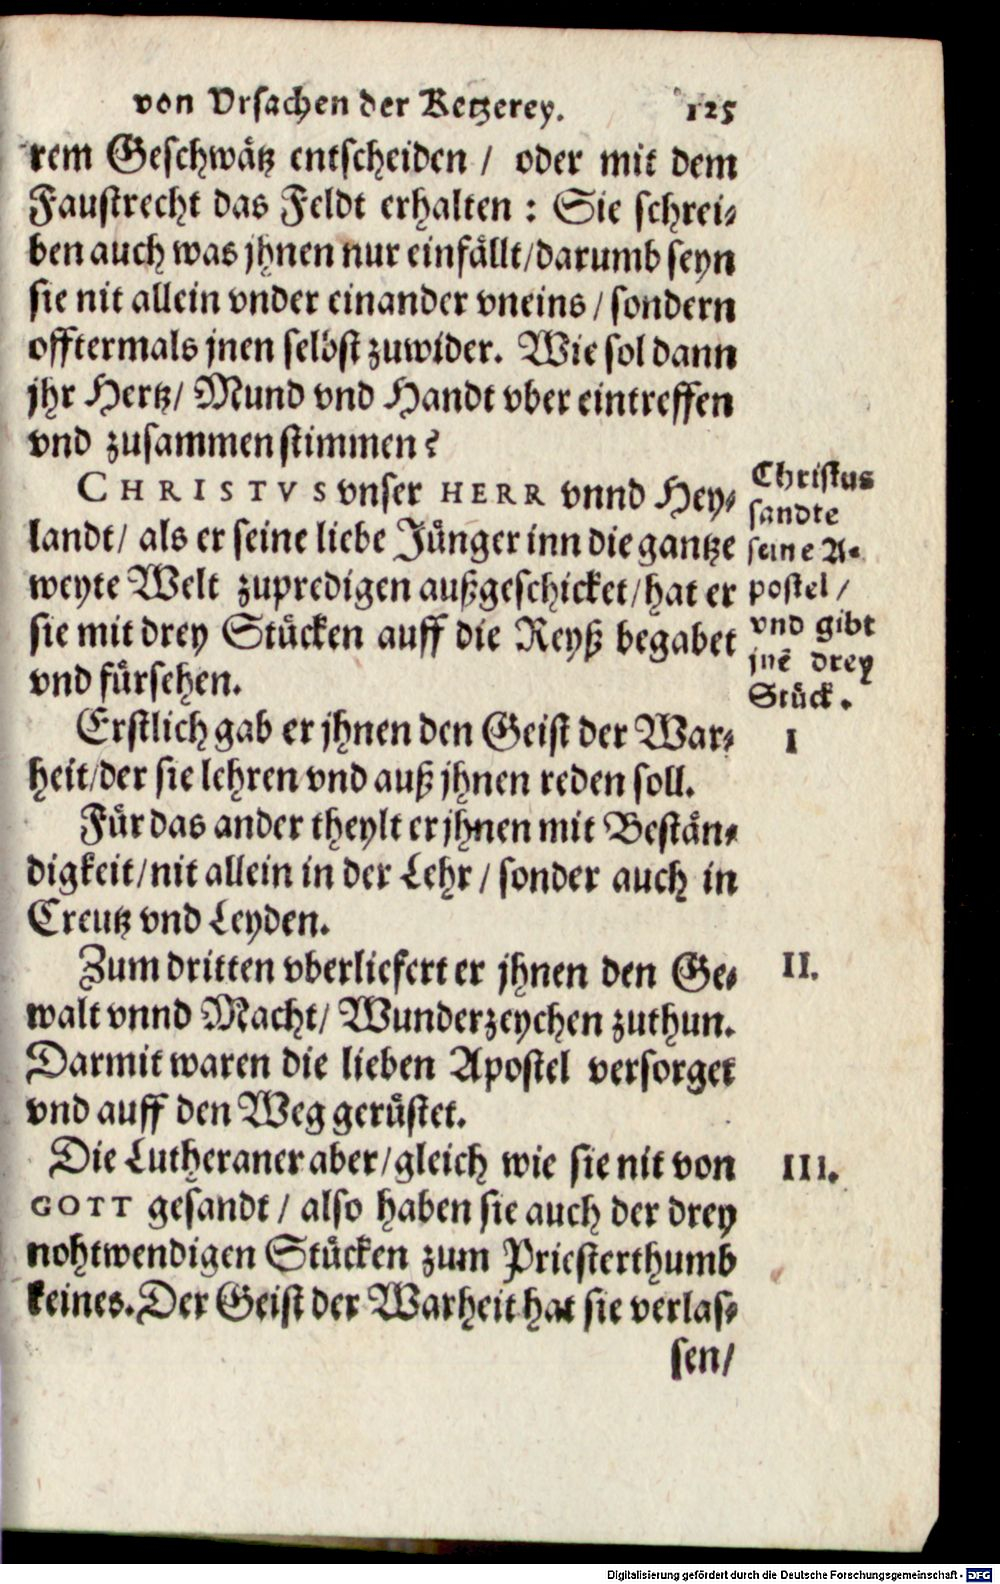 von Vrsachen der Ketzerey. 125
rem Geschwätz entscheiden / oder mit dem
Faustrecht das Feldt erhalten : Sie schrei-
ben auch was jhnen nur einfällt/darumb seyn
sie nit allein vnder einander vneins / sondern
offtermals jnen selbst zuwider. Wie sol dann
jhr Hertz/ Mund vnd Handt vber eintreffen
vnd zusammen stimmen?
CHRISTVS vnser HERR vnnd Hey-
landt/ als er seine liebe Jünger inn die gantze
weyte Welt zupredigen außgeschicket/hat er
sie mit drey Stücken auff die Reyß begabet
vnd fürsehen.
Christus
sandte
seine A-
postel /
vnd gibt
jnẽ drey
Stück.
Erstlich gab er jhnen den Geist der War-
heit/der sie lehren vnd auß jhnen reden soll.
I
Für das ander theylt er jhnen mit Bestän-
digkeit/nit allein in der Lehr / sonder auch in
Creutz vnd Leyden.
Zum dritten vberliefert er jhnen den Ge-
walt vnnd Macht/ Wunderzeychen zuthun.
Darmit waren die lieben Apostel versorget
vnd auff den Weg gerüstet.
II.
Die Lutheraner aber/gleich wie sie nit von
GOTT gesandt / also haben sie auch der drey
nohtwendigen Stücken zum Priesterthumb
keines. Der Geist der Warheit hat sie verlas-
III.
sen/
Digitalisierung gefördert durch die Deutsche Forschungsgemeinschaft - DFG